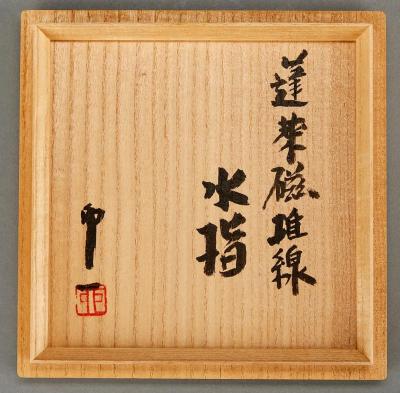 蓬莱磁堆線
水指
卯一